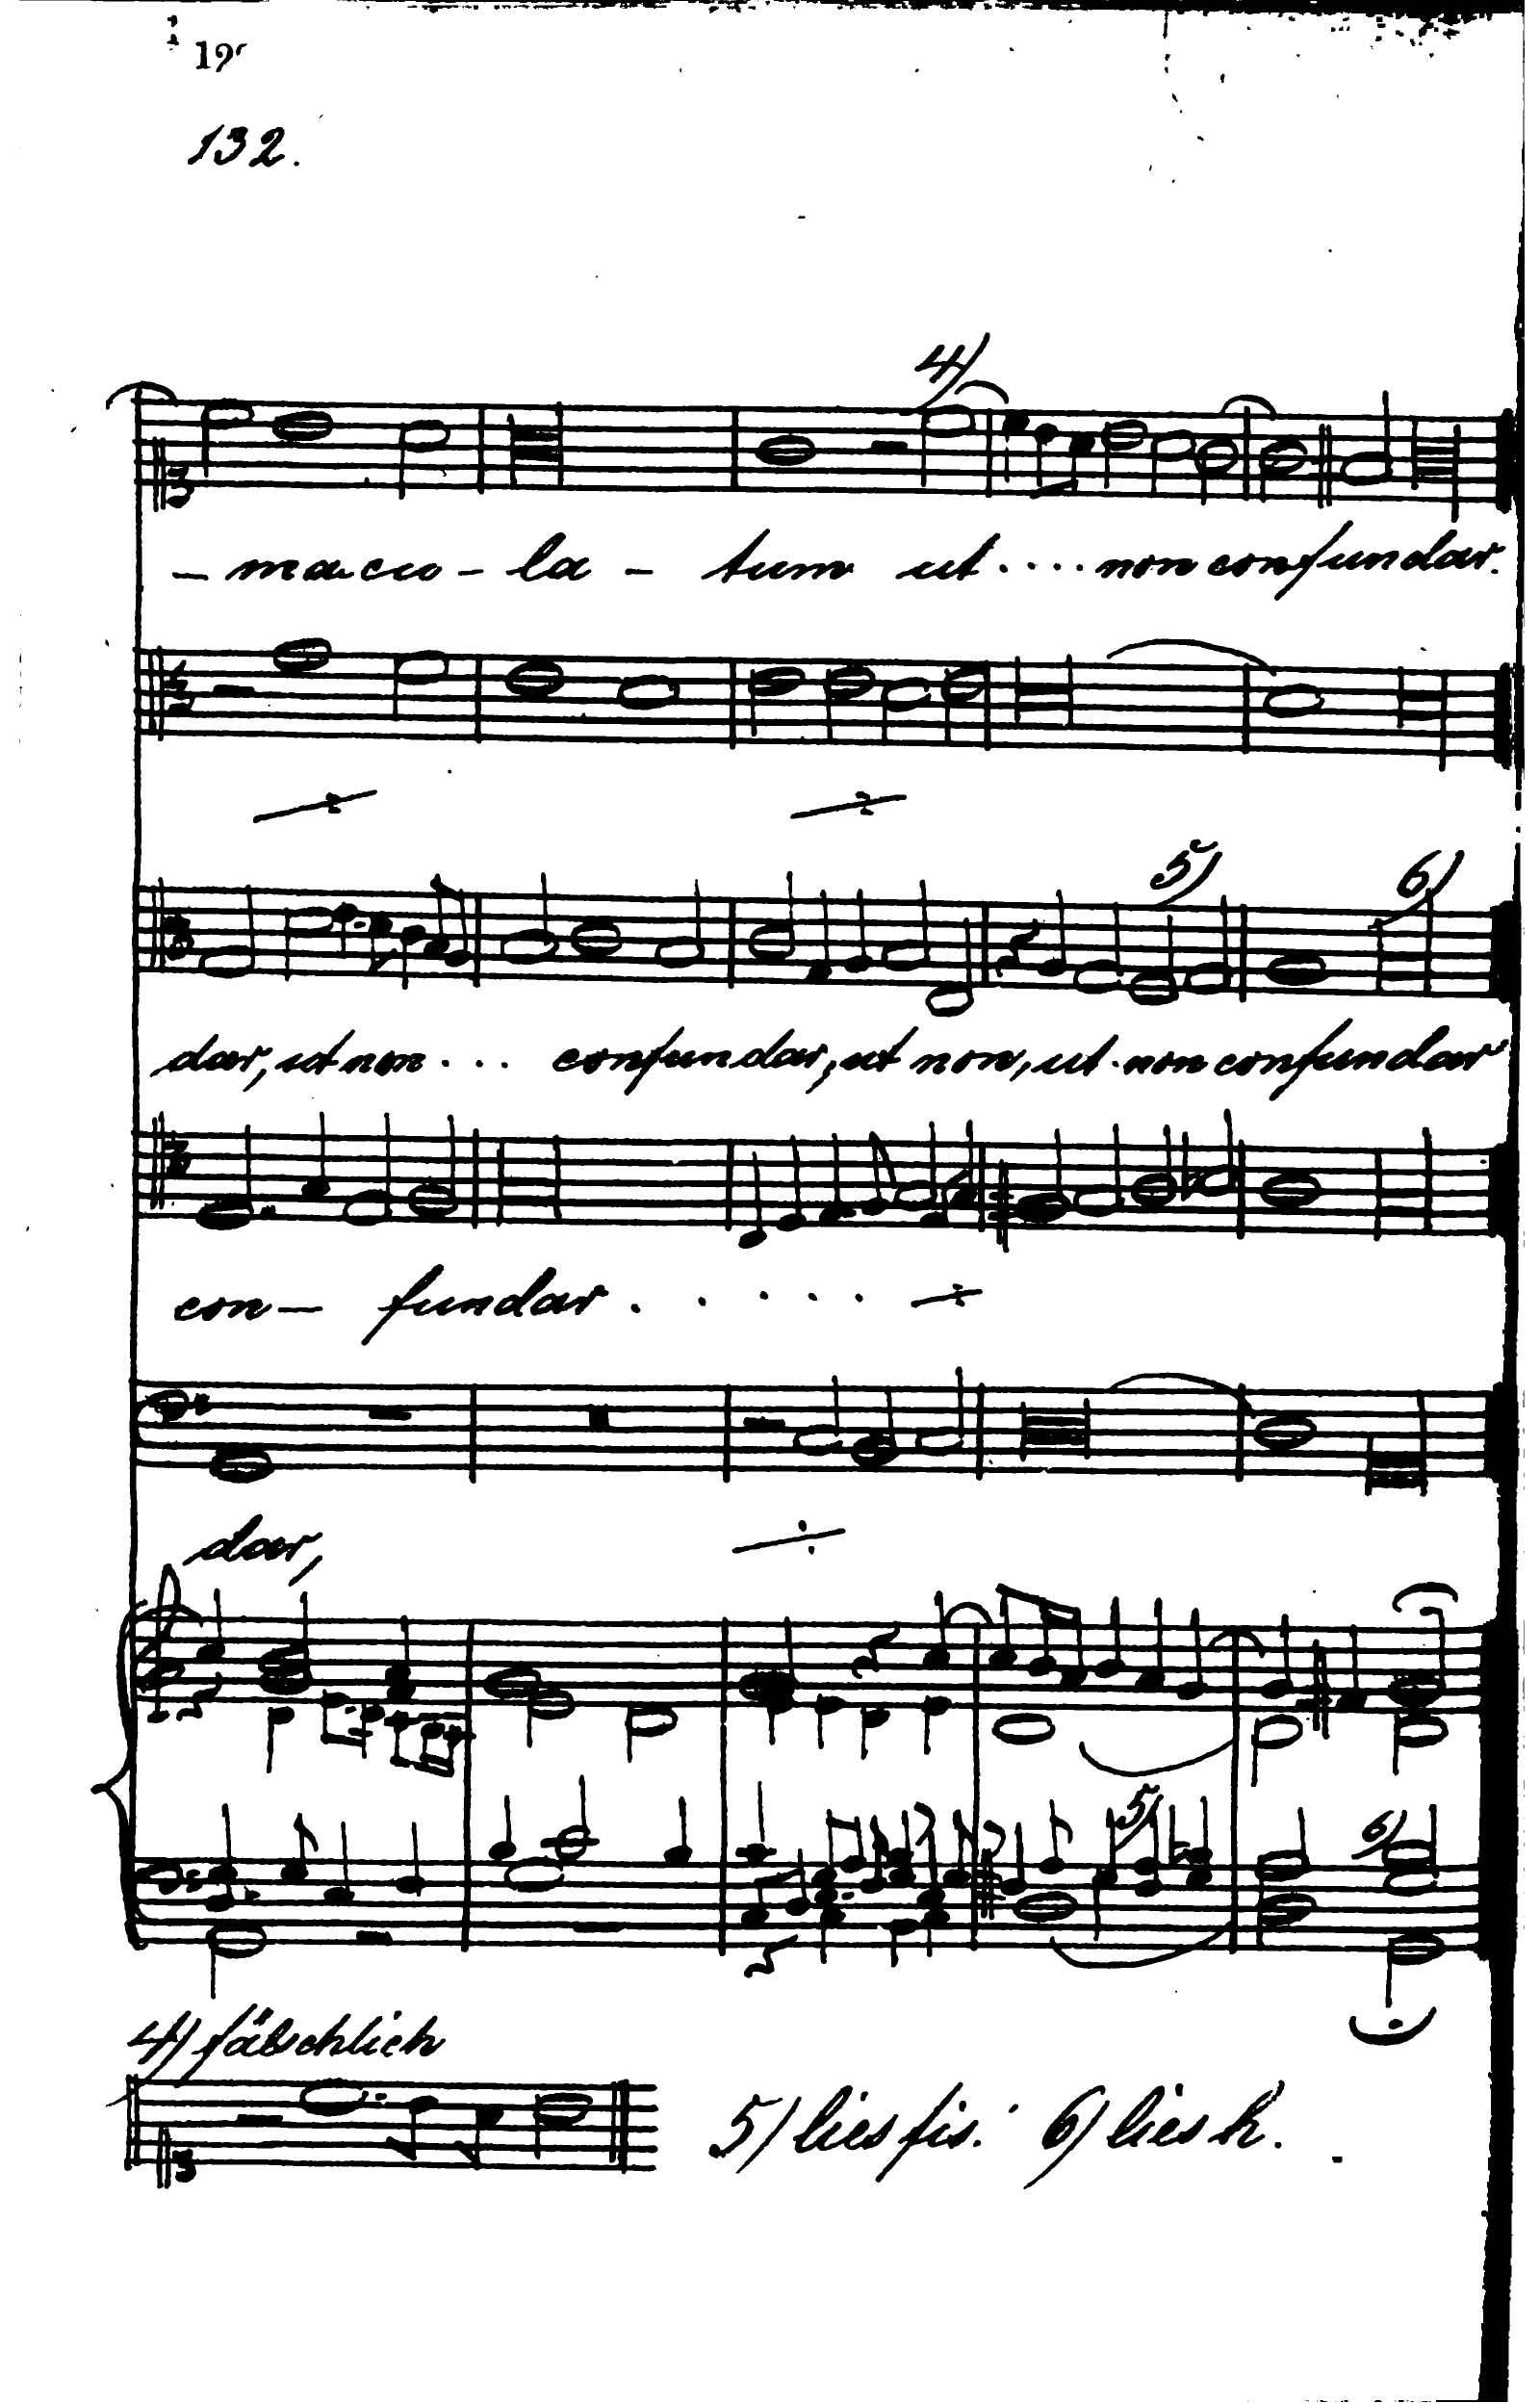 132.
4)
- macu - la - tum ut .... non confundar.
5) 6)
dar, ut non ... confundar, ut non, ut non confundar
con - fundar . . . . .
dar,
5) 6)
4) fälschlich
5) lies fis. 6) lies h.